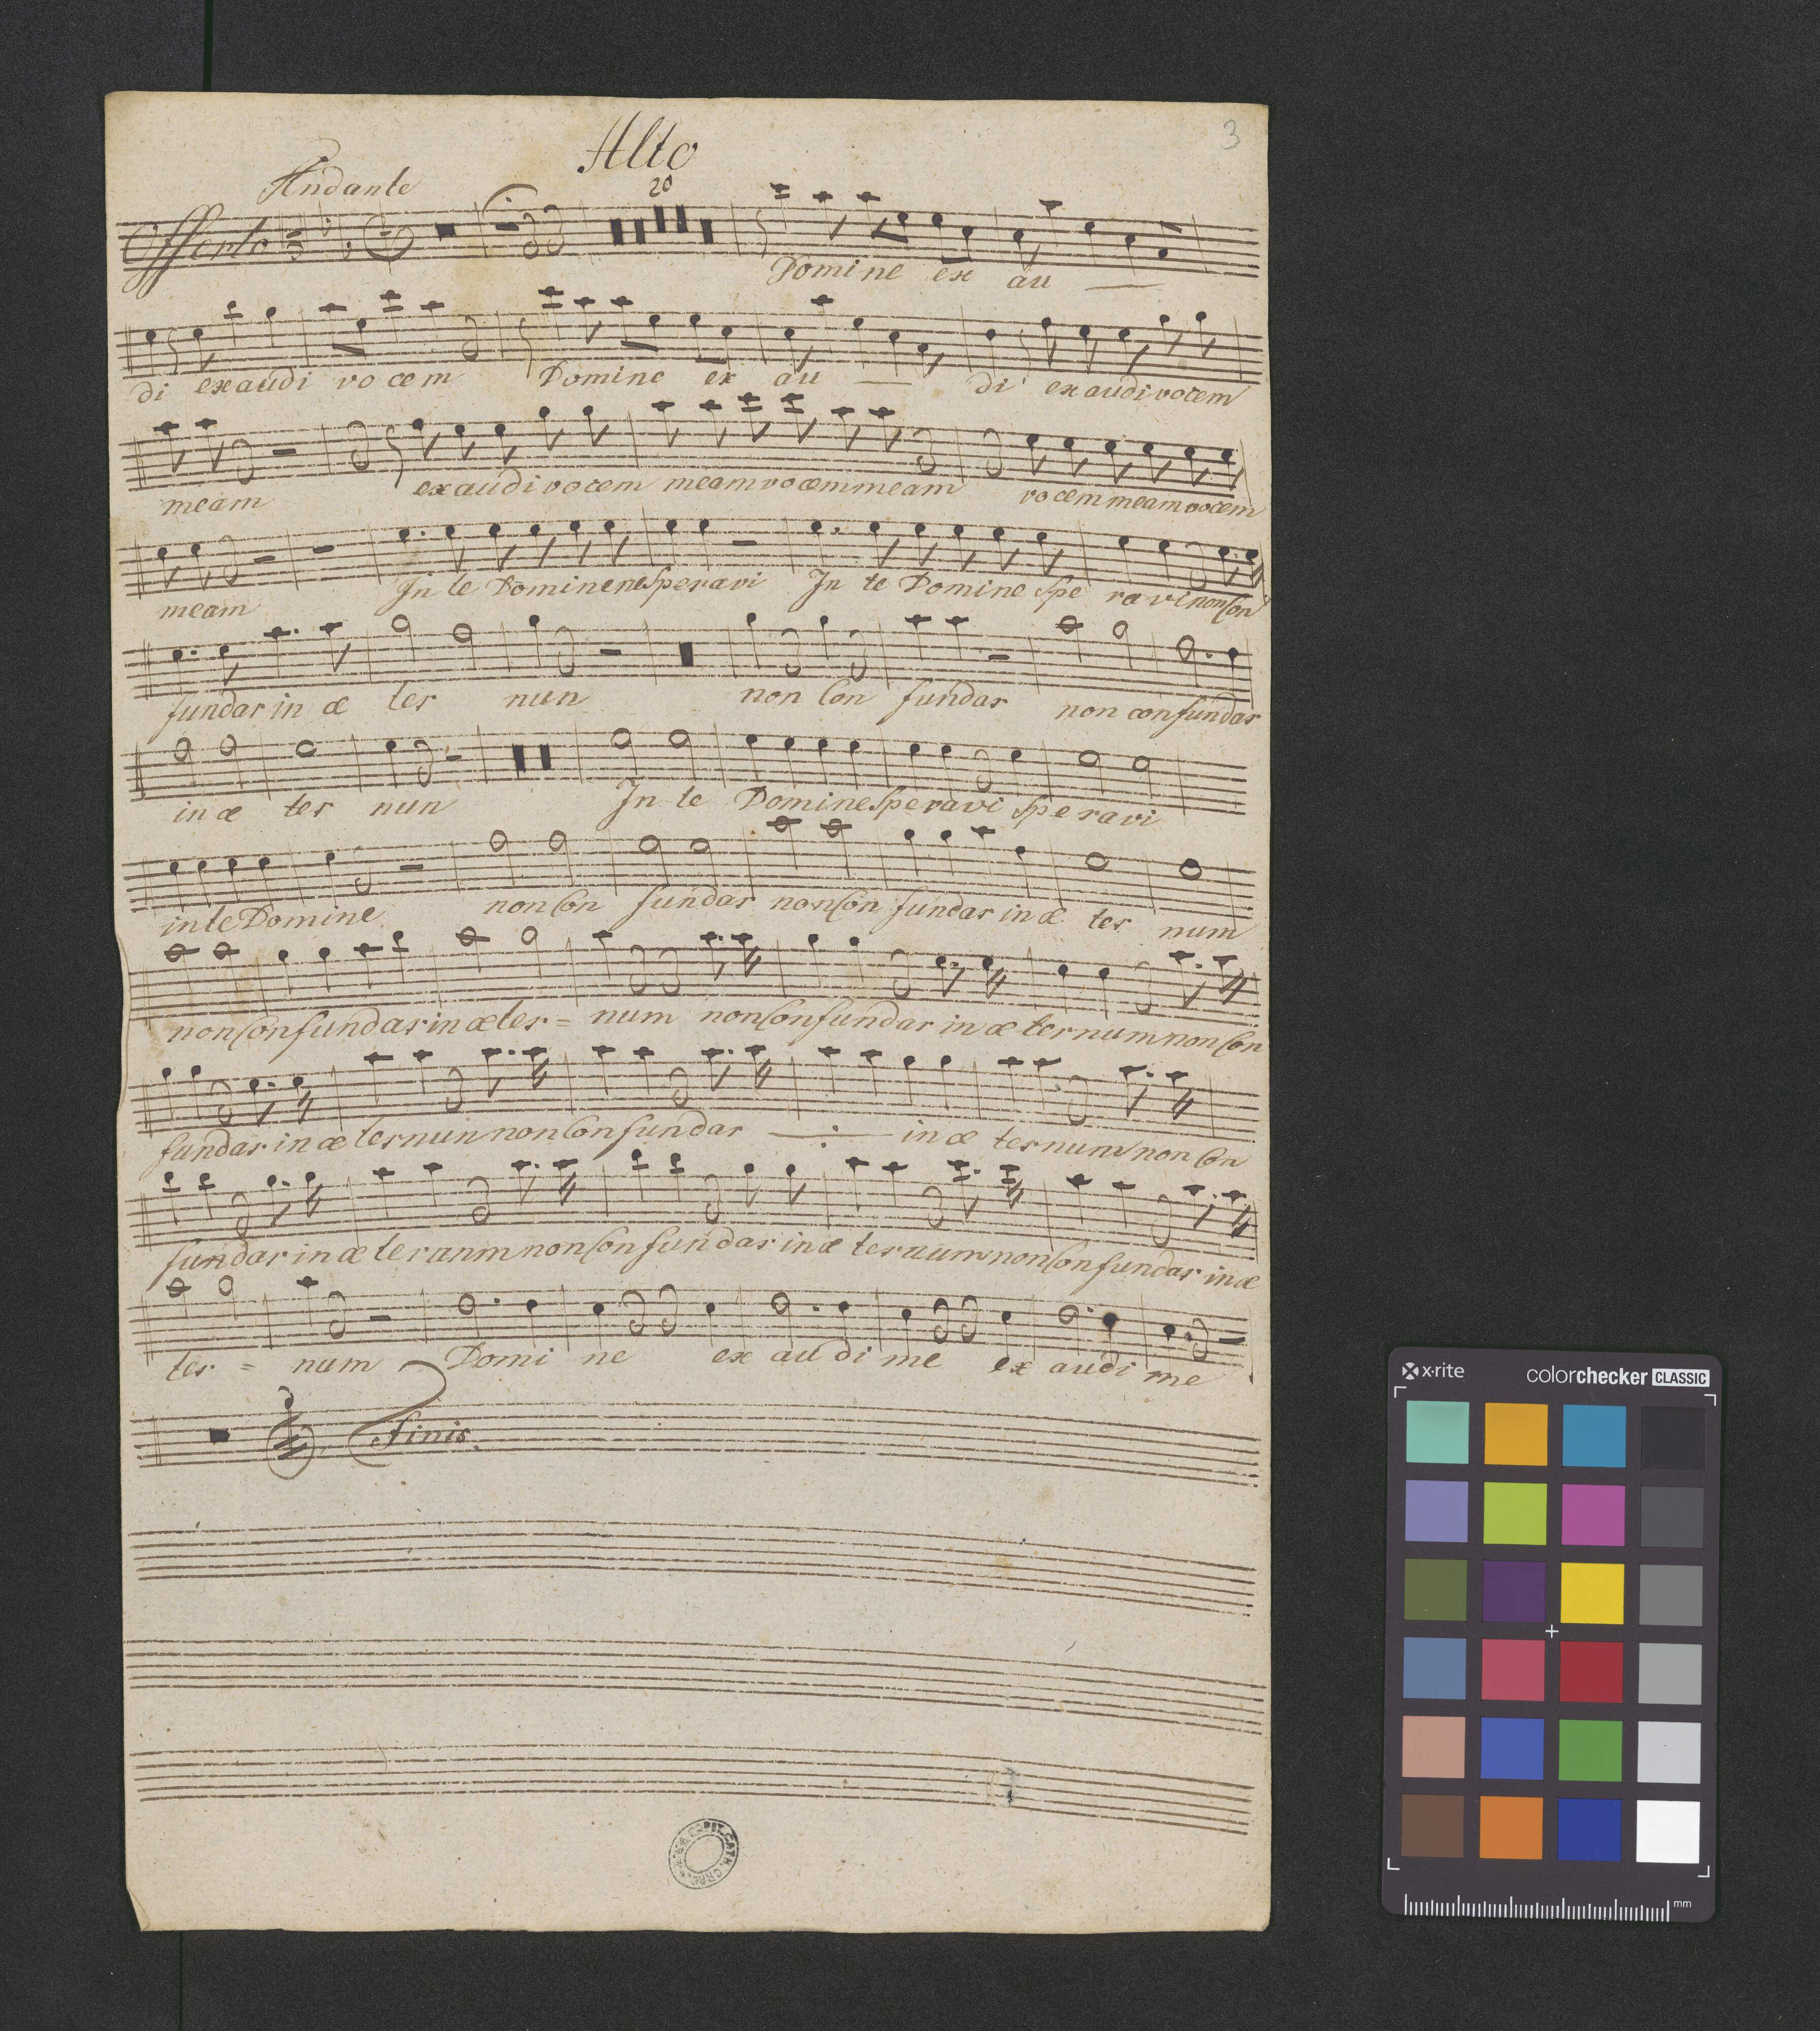 Alto
3
Andante
20
Offerto
Domine ex au
di exaudi vocem Domine ex au di exaudi vocem
meam exaudi vocem meam vocem meam vocem meam vocem
meam In te Domine ne speravi In te Domine spe ravi non Con
fundar in æ ter nun non Con fundar non con fundar
in æ ter nun In te Domine speravi speravi
in te Domine non Con fundar non Con fundar in æ ter num
non Con fundar in æ ter = num non Con fundar in æ ter num non Con
fundar in æ ter nun non Con fundar in æ ter num non Con
fundar in æ ter unm non Con fundar in æ ter num non Con fundar in æ
ter = num Domi ne ex audi me ex audi me
Finis.
x-rite
colorchecker CLASSIC
mm